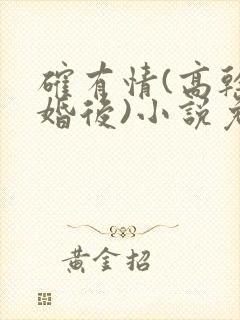 確有情(高幹
婚後)小說免
黃金招